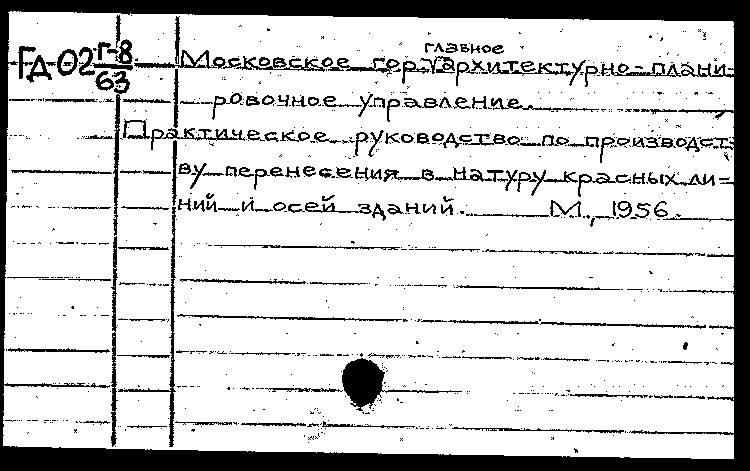 главное
ГД-02 Г-8 Московское гор. архитектурно-плани-
63
ровочное управление.
Практическое руководство по производст-
ву перенесения в натуру красных ли-
ний и осей зданий. М., 1956.